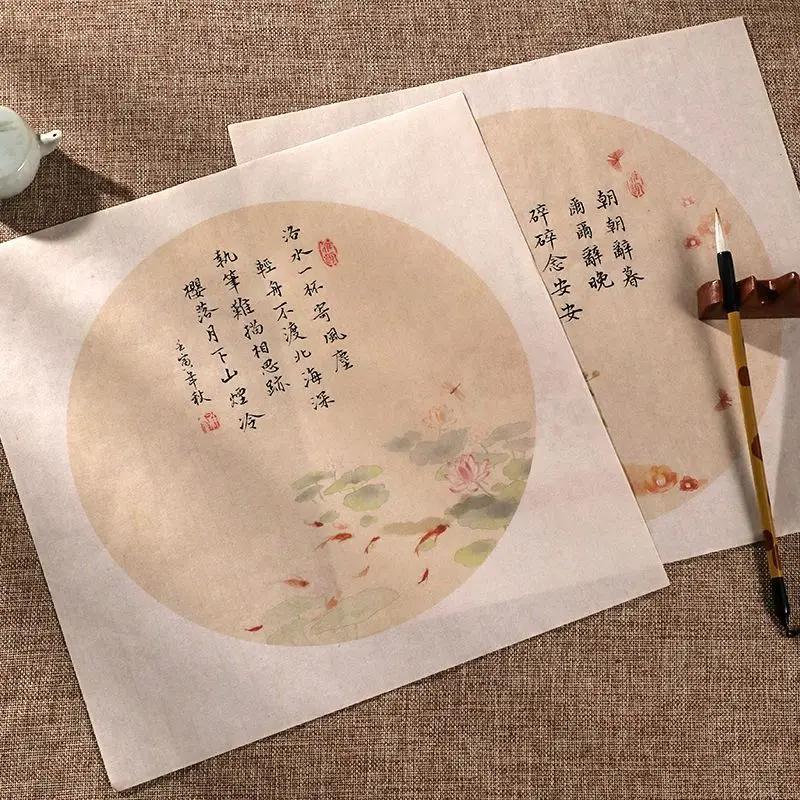 洛水一杯寄風塵
輕舟不渡北海深
執筆難描相思跡
櫻落月下山煙冷
壬寅年秋
朝朝辭暮
爾爾辭晚
碎碎念安安